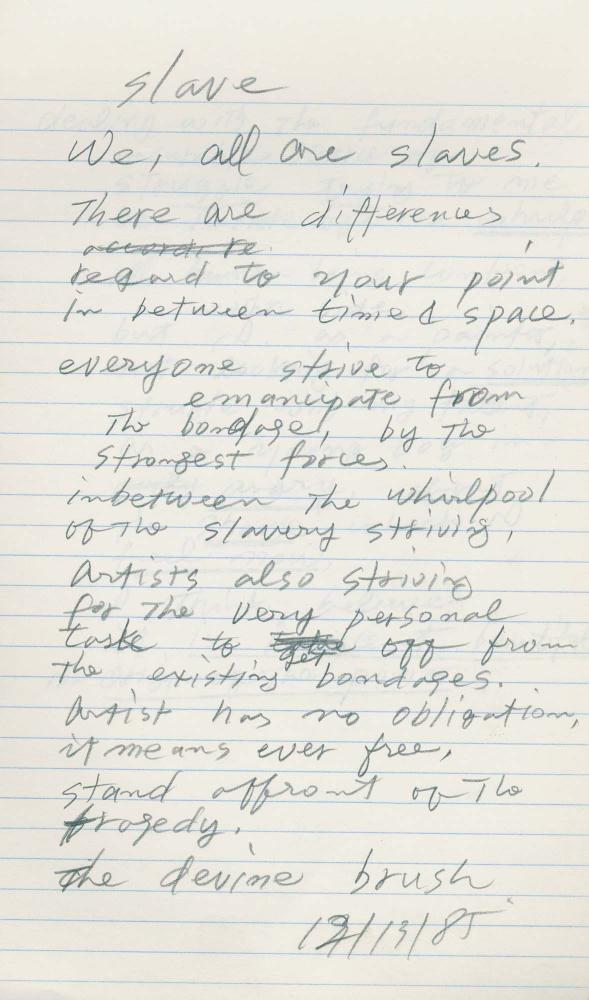 slave
We, all are slaves.
There are differences,
accordi re
regard to your point
in between time & space.
everyone strive to
emancipate from
The bondage, by The
strongest forces.
inbetween The whirlpool
of The slavery striving,
Artists also striving
for The very personal
task to get off from
The existing bondages.
Artist has no obligation,
it means ever free,
stand affront of The
tragedy.
The devine brush.
12/13/85